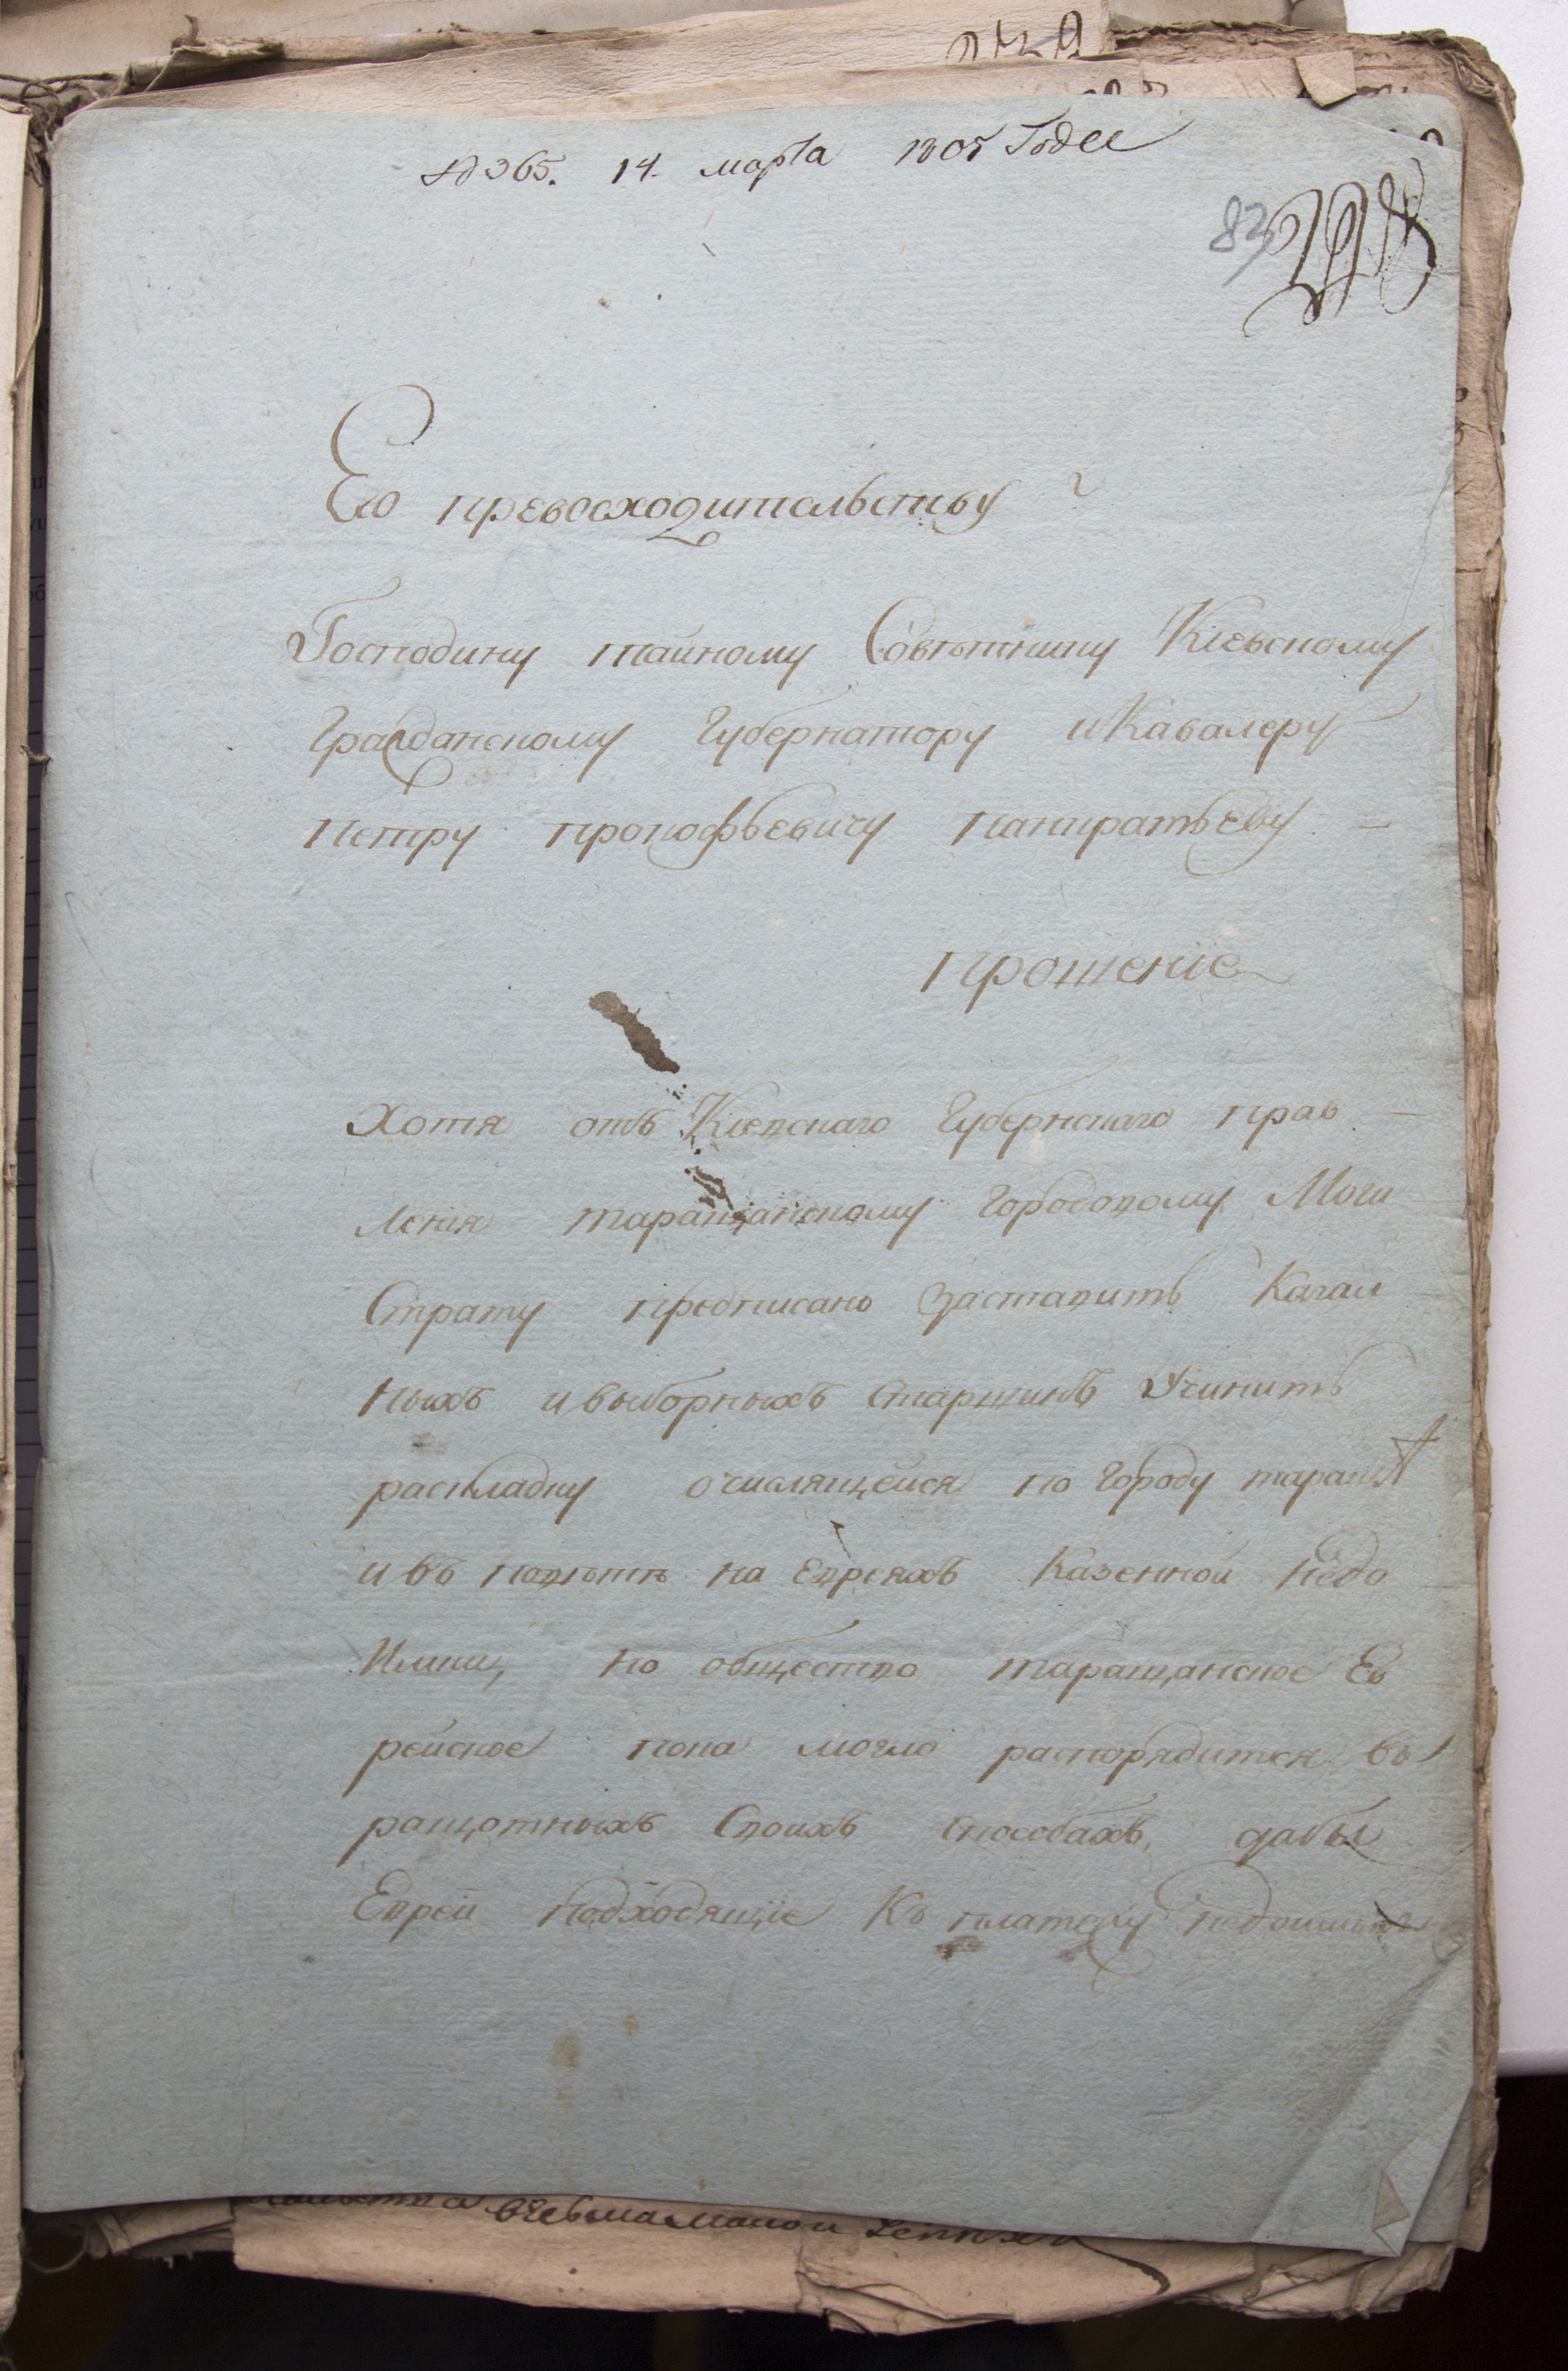 № 365. 14. марта 1805 Года
83
Его превосходительству
Господину тайному Совѣтнику Кіевскому
Гражданскому Губернатору и Кавалеру
Петру прокофьевичу панкратьеву
прошеніе
Хотя отъ Кіевскаго Губернскаго прав
ленія таращанскому городовому Маги
страту предписано заставить Кагал
ныхъ и выборныхъ старшинъ Учинить
раскладку о числящейся по городу таращѣ
и въ повѣтѣ на евреяхъ Казенной недо
имки, но общество таращанское Ев
рейское пока могло распорядится въ
ращотныхъ Своихъ способахъ, дабы
Еврей подходящіе Къ платежу недоимки